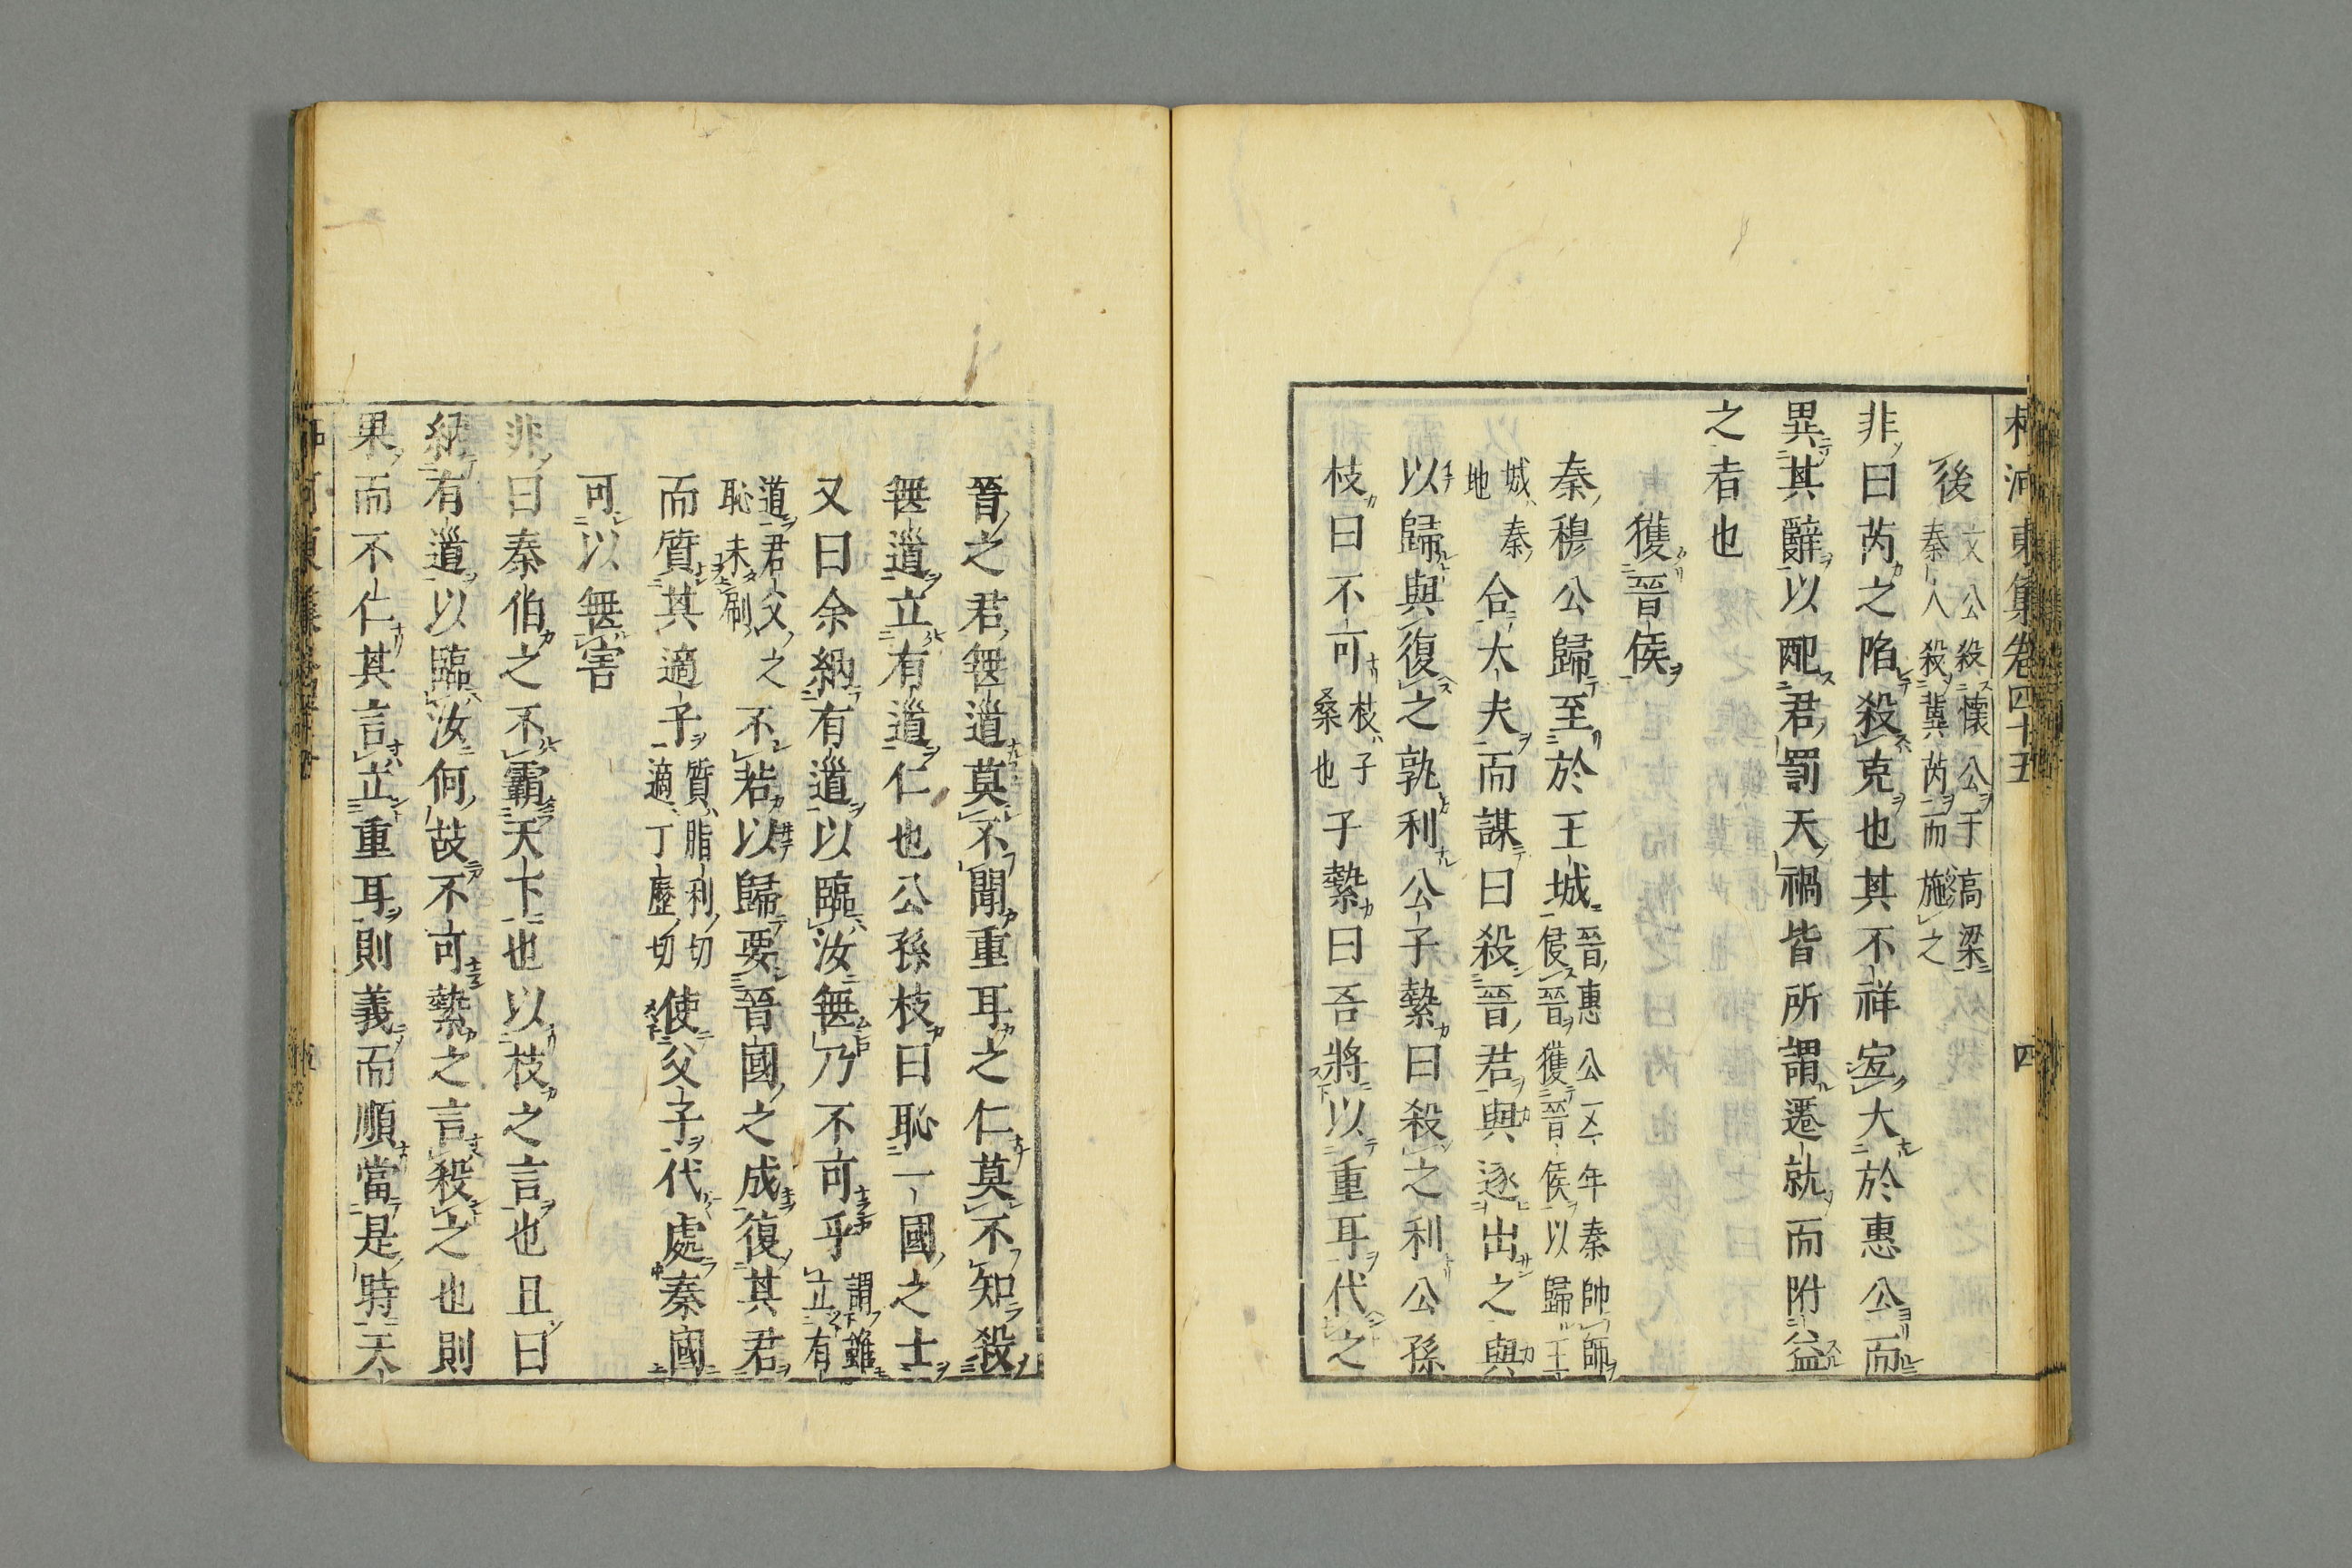 柳河東集卷四十五 四
後文公殺懷公于高梁秦人殺冀芮而施之
非曰芮之陷殺克也其不祥宐大於惠公而
異其辭以配君罰天禍皆所謂遷就而附益
之者也
獲晉侯
秦穆公歸至於王城晉惠公十五年秦帥師侵晉獲晉侯以歸王
城秦地合大夫而謀曰殺晉君與逐出之與
以歸與復之孰利公子縶曰殺之利公孫
枝曰不可枝子桑也子縶曰吾將以重耳代之
晉之君無道莫不聞重耳之仁莫不知殺
無道立有道仁也公孫枝曰恥一國之士
又曰余納有道以臨汝無乃不可乎謂雖立有
道君父之恥未刷不若以歸要晉國之成復其君
而質其適子質脂利切適丁歷切使父子代處秦國
可以無害
非曰秦伯之不霸天下也以枝之言也且曰
納有道以臨汝何故不可縶之言殺之也則
果而不仁其言立重耳則義而順當是時天